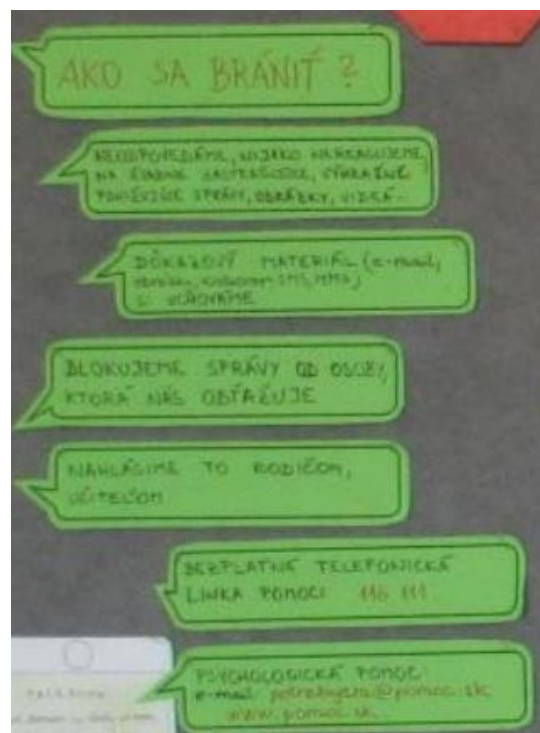 AKO SA BRÁNIŤ ?
NEODPOVEDÁME, NIJAKO NEREAGUJEME,
NA ŽIADNE ZASTRAŠUJÚCE, VÝHRAŽNÉ
PONIŽUJÚCE SPRÁVY, OBRÁZKY, VIDEÁ..
DÔKAZOVÝ MATERIÁL (e-mail,
SMS, MMS)
SI UCHOVÁME
BLOKUJEME SPRÁVY OD OSOBY,
KTORÁ NÁS OBŤAŽUJE
NAHLÁSIME TO RODIČOM,
UČITEĽOM
BEZPLATNÁ TELEFONICKÁ
LINKA POMOCI 116 111
PSYCHOLOGICKÁ POMOC:
e-mail: potrebujem@pomoc.sk
www.pomoc.sk